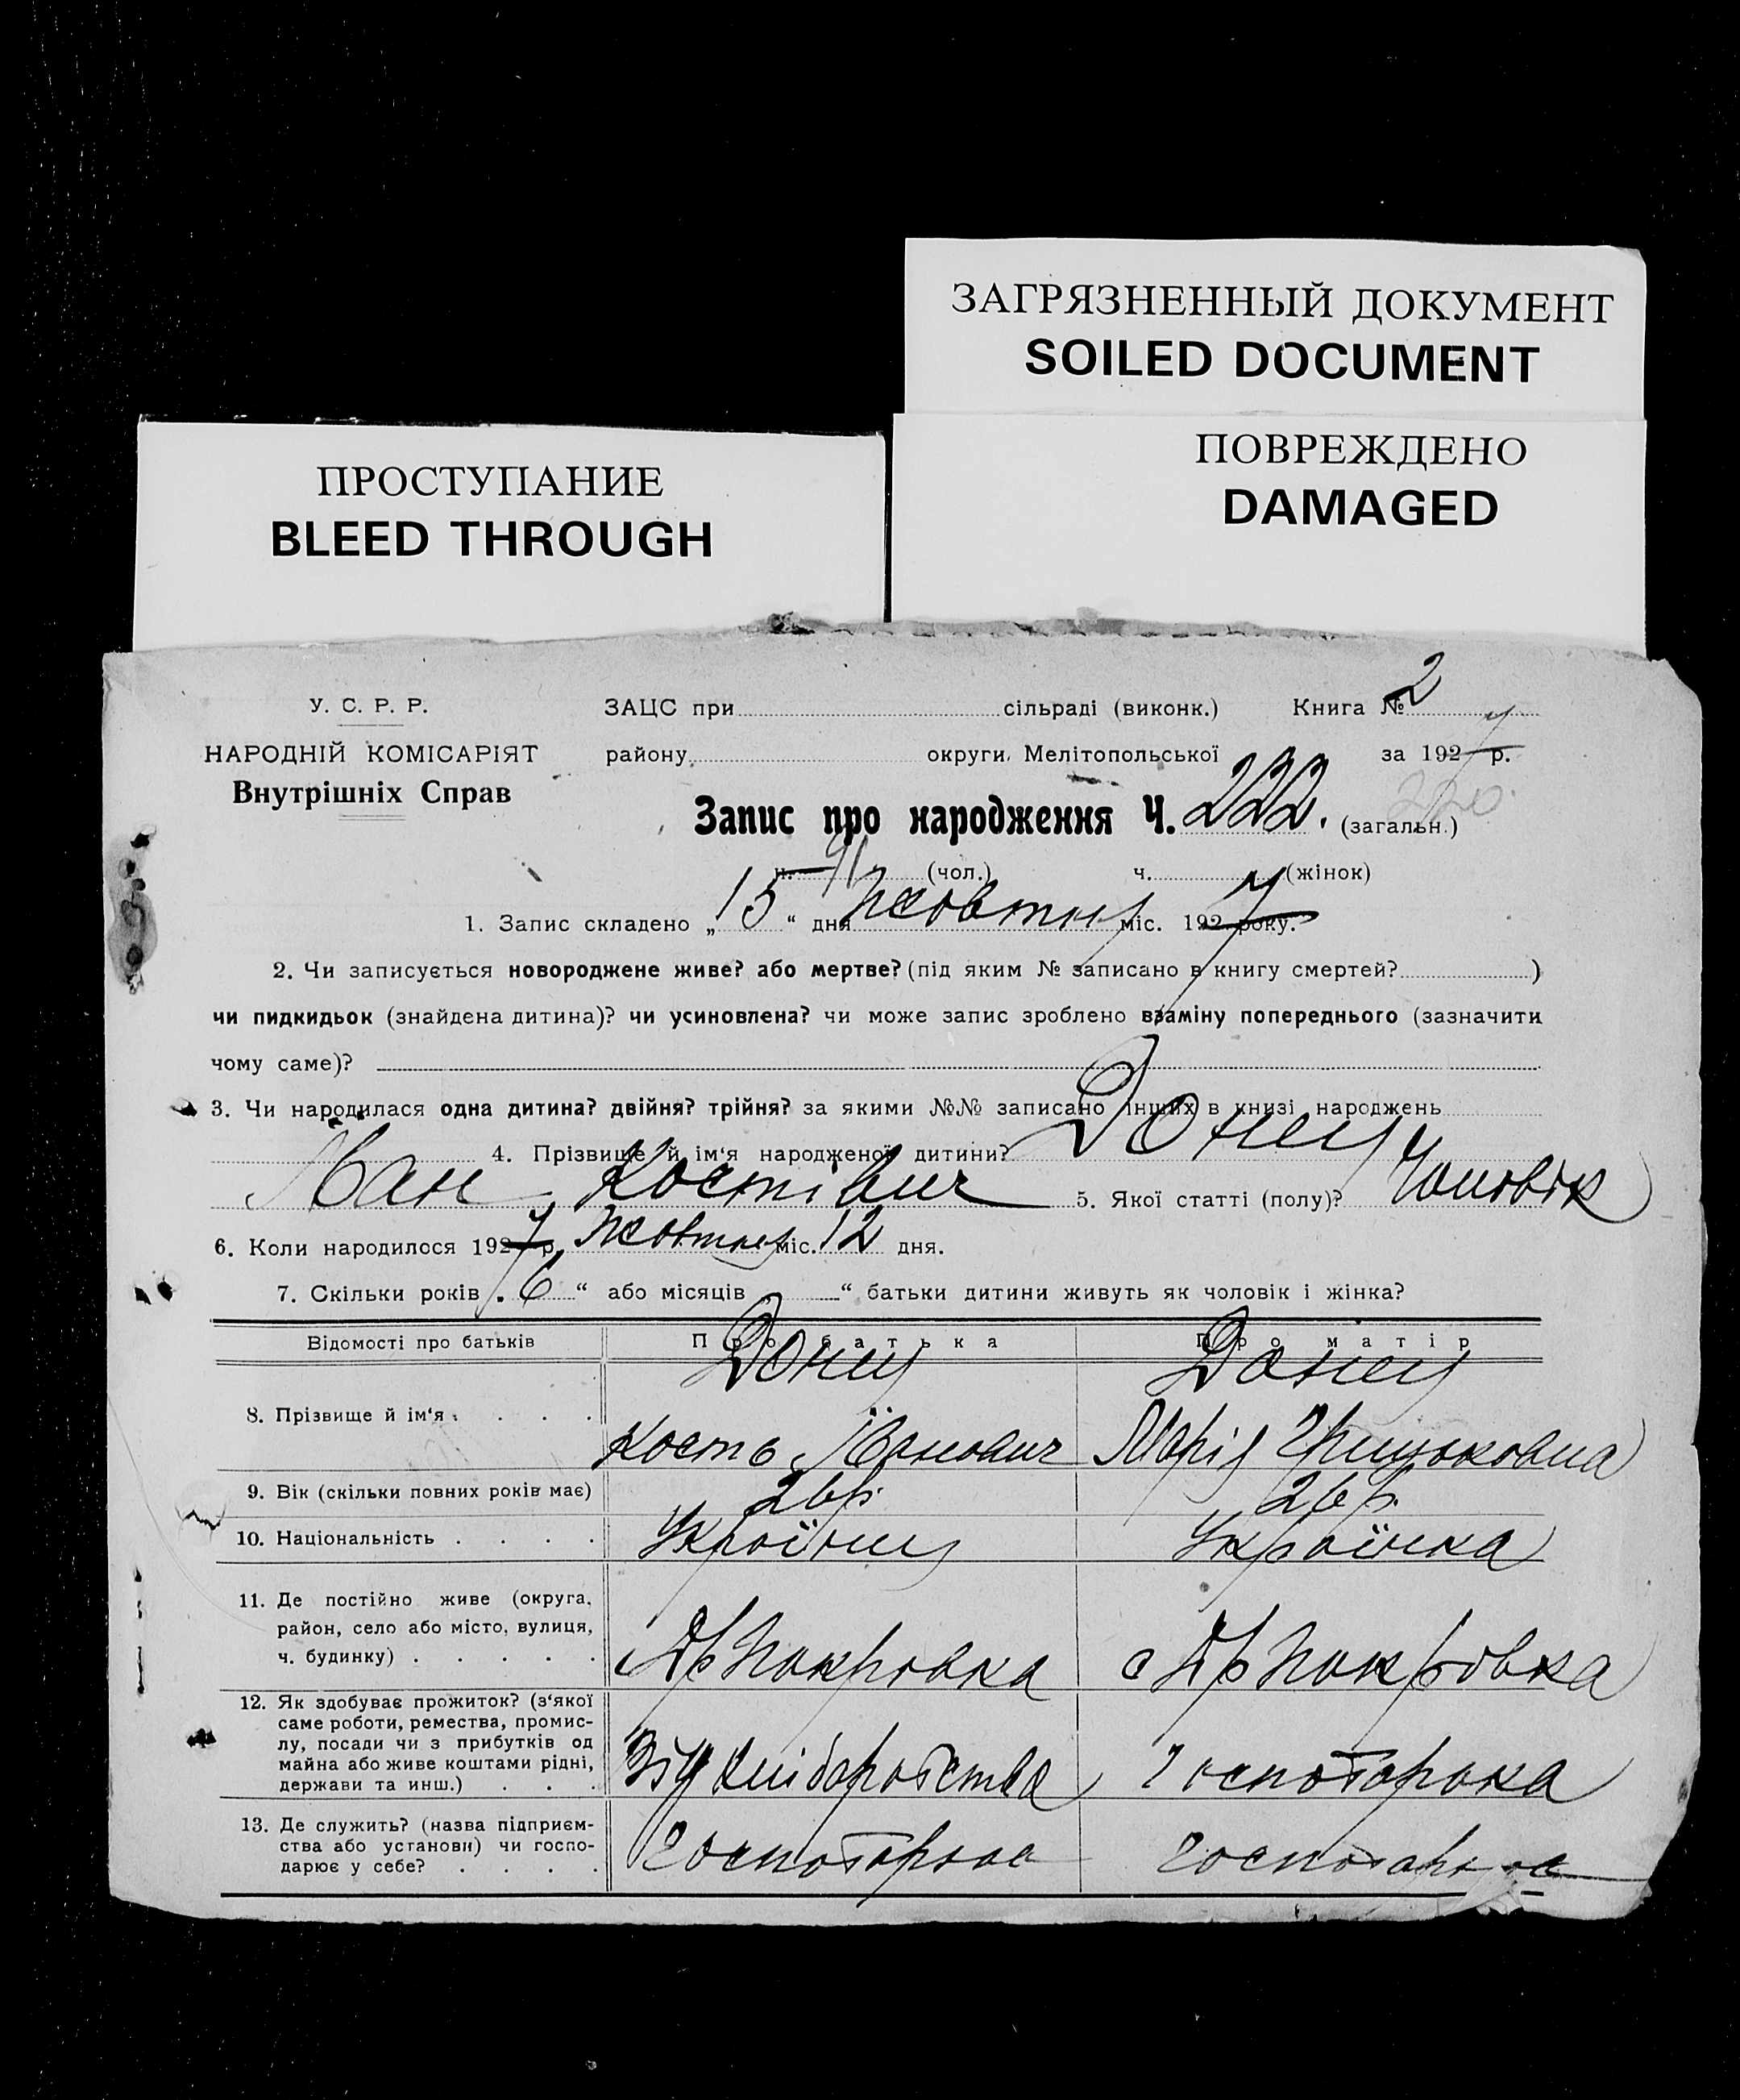 ЗАГРЯЗНЕННЫЙ ДОКУМЕНТ
SOILED DOCUMENT
ПОВРЕЖДЕНО
DAMAGED
ПРОСТУПАНИЕ
BLEED THROUGH
У. С. Р. Р.
НАРОДНІЙ КОМІСАРІЯТ
Внутрішніх Справ
ЗАЦС при сільраді (виконк.) Книга № 2
району округи Мелітопольської за 1927 р.
Запис про народження Ч. 222. (загальн.) 220.
ч. 91 (чол.) ч. (жінок)
1. Запис складено „15“ дня Жовтня міс. 1927 року.
2. Чи записується новороджене живе? або мертве? (під яким № записано в книгу смертей? )
чи пидкидьок (знайдена дитина)? чи усиновлена? чи може запис зроблено взаміну попереднього (зазначити
чому саме)?
3. Чи народилася одна дитина? двійня? трійня? за якими №№ записано інших в книзі народжень
4. Прізвище й ім‘я народженої дитини? Донец
Іван Костівич 5. Якої статті (полу)? Чоловік
6. Коли народилося 1927 р. Жовтня міс. 12 дня.
7. Скільки років „6“ або місяців „ “ батьки дитини живуть як чоловік і жінка?
Відомості про батьків Про батька Про матір
8. Прізвище й ім‘я . . . . Донец Донец
Кость Іванович Марія
9. Вік (скільки повних років має) 26 р. 26 р.
10. Національність . . . . Українец Українка
11. Де постійно живе (округа,
район, село або місто, вулиця,
ч. будинку) . . . . . Покровка с Покровка
12. Як здобуває прожиток? (з‘якої
саме роботи, ремества, промис-
лу, посади чи з прибутків од
майна або живе коштами рідні,
держави та инш.) . . . хліборобства Господарка
13. Де служить? (назва підприєм-
ства або установи) чи госпо-
дарює у себе? . . . . Господарює Господарює